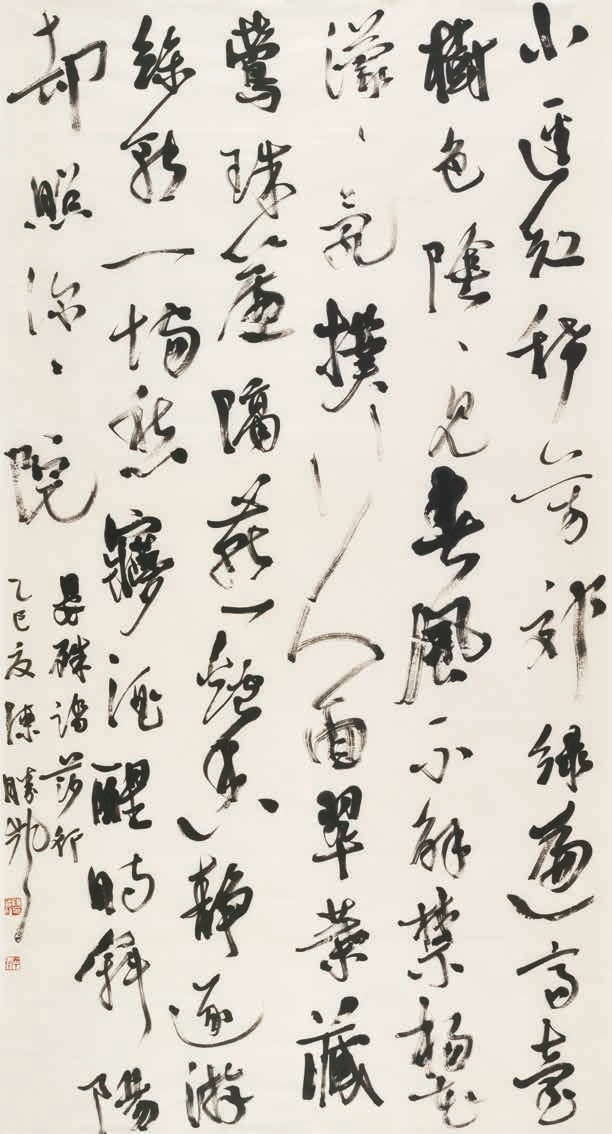 小逕紅稀芳郊綠遍高臺
樹色陰〻見春風不解禁楊花
濛〻亂撲行人面翠葉藏
鶯珠簾隔燕爐香靜逐游
絲轉一場愁夢酒醒時斜陽
却照深〻院
晏殊踏莎行
乙巳夏陳勝